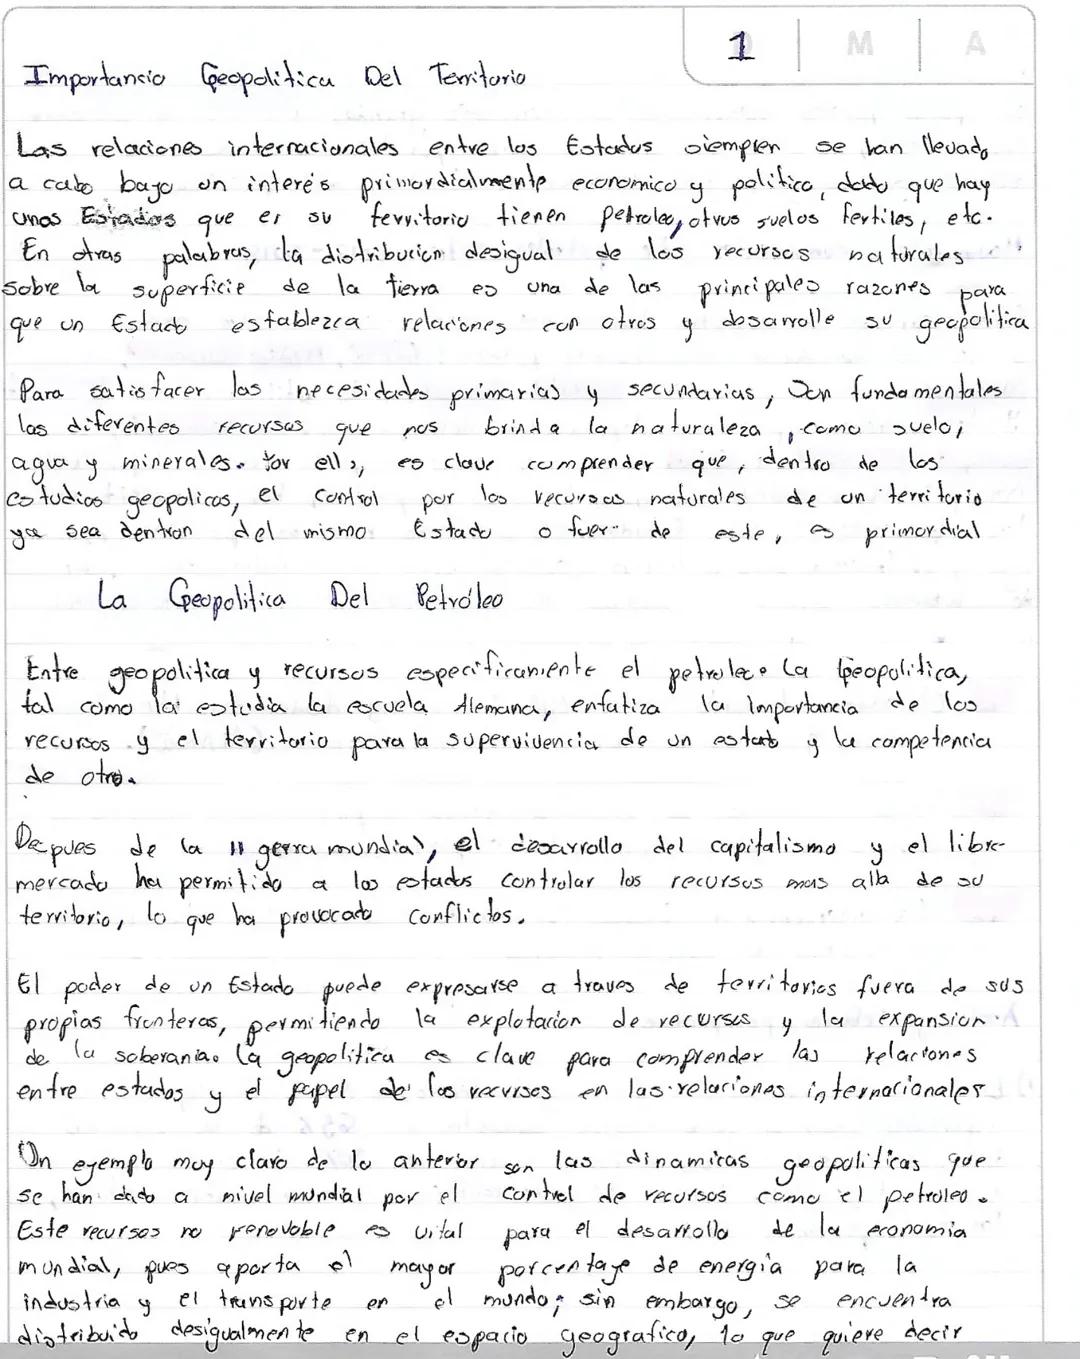 1 M A
Importancia Geopolitica Del Territorio
Las relaciones internacionales entre los Estados siempren se han llevado
a cabo bajo un interés primordialmente economico y politico, dado que hay
unos Estados que en su territorio tienen petroleo, otros suelos fertiles, etc.
En otras palabras, la distribucion desigual de los recursos naturales
sobre la superficie de la tierra es una de las principales razones para
que un Estado establezca relaciones con otros y dosarrolle su geopolitica
Para satisfacer las necesidades primarias y secundarias, Son fundamentales
los diferentes recursos que nos brinda la naturaleza, como suelo,
agua y minerales. Por ello, es clave comprender que, dentro de los
estudios geopolicos, el control por los recursos naturales de un territorio
ya sea dentron del mismo Estado o fuera de este, es primordial
La Geopolitica Del Petróleo
Entre geopolitica y recursos especificamente el petroleo. La Geopolitica,
tal como la estudia la escuela Alemana, enfatiza la Importancia de los
recursos y el territorio para la supervivencia de un estado y la competencia
de otro.
Depues de la II gerra mundial, el desarrollo del capitalismo y el libre
mercado ha permitido a los estados controlar los recursos mas alla de su
territorio, lo que ha provocado conflictos.
El poder de un Estado puede expresarse a traves de territorios fuera de sus
propias fronteras, permitiendo la explotacion de recursos y la expansion
de la soberania. La geopolitica es clave para comprender las relaciones
entre estados y el papel de los recursos en las relaciones internacionales
Un ejemplo muy claro de lo anterior son las dinamicas geopoliticas que
se han dado a nivel mundial por el control de recursos como el petroleo.
Este recursos no renovable es vital para el desarrollo de la economia
mundial, pues aporta el mayor porcentaje de energia para la
industria y el transporte en el mundo; sin embargo, se encuentra
distribuido desigualmente en el espacio geografico, lo que quiere decir